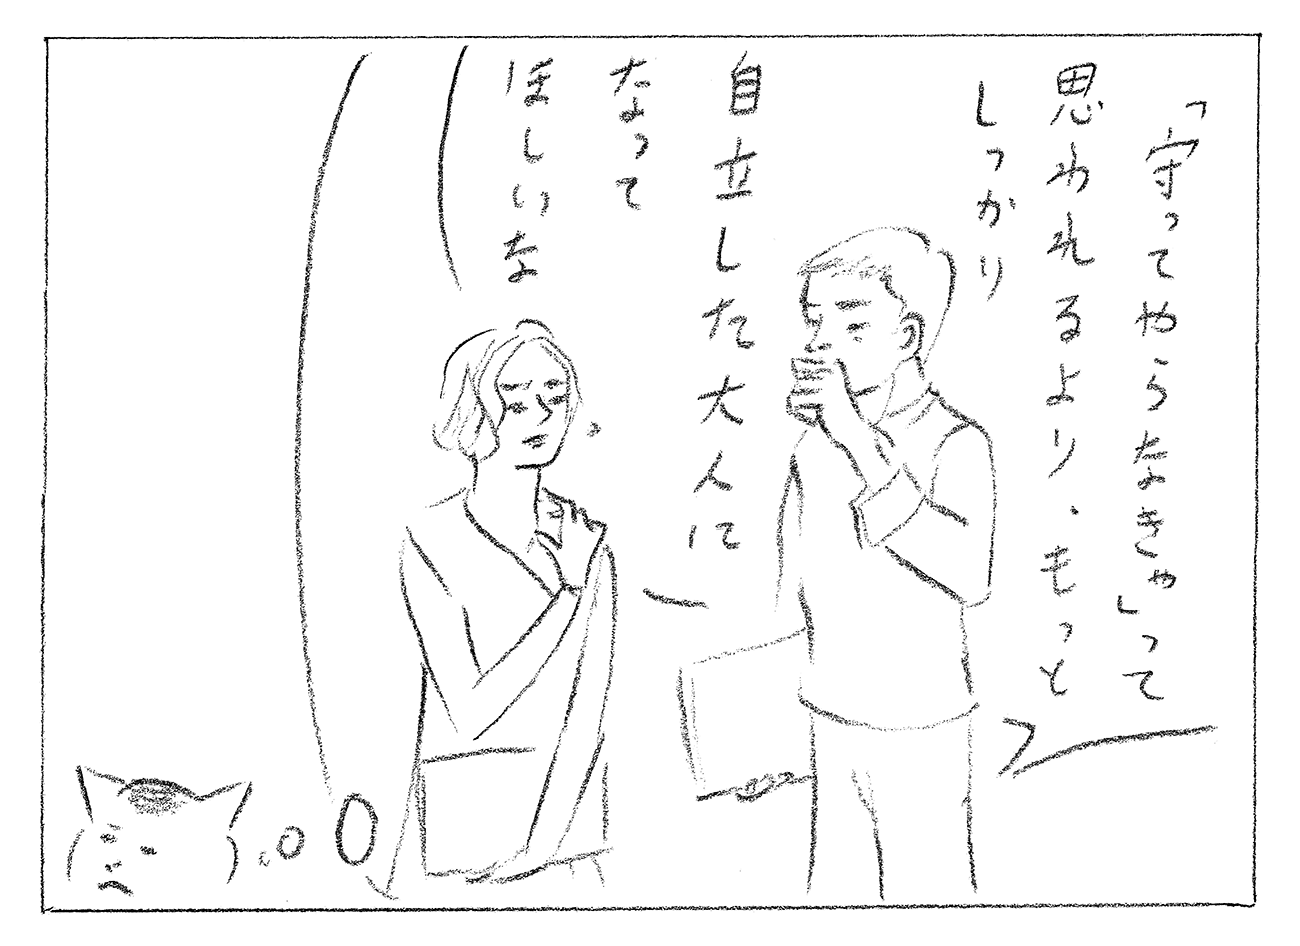 「守ってやらなきゃ」って
思われるより、もっと
しっかり
自立した大人に
なって
ほしいな